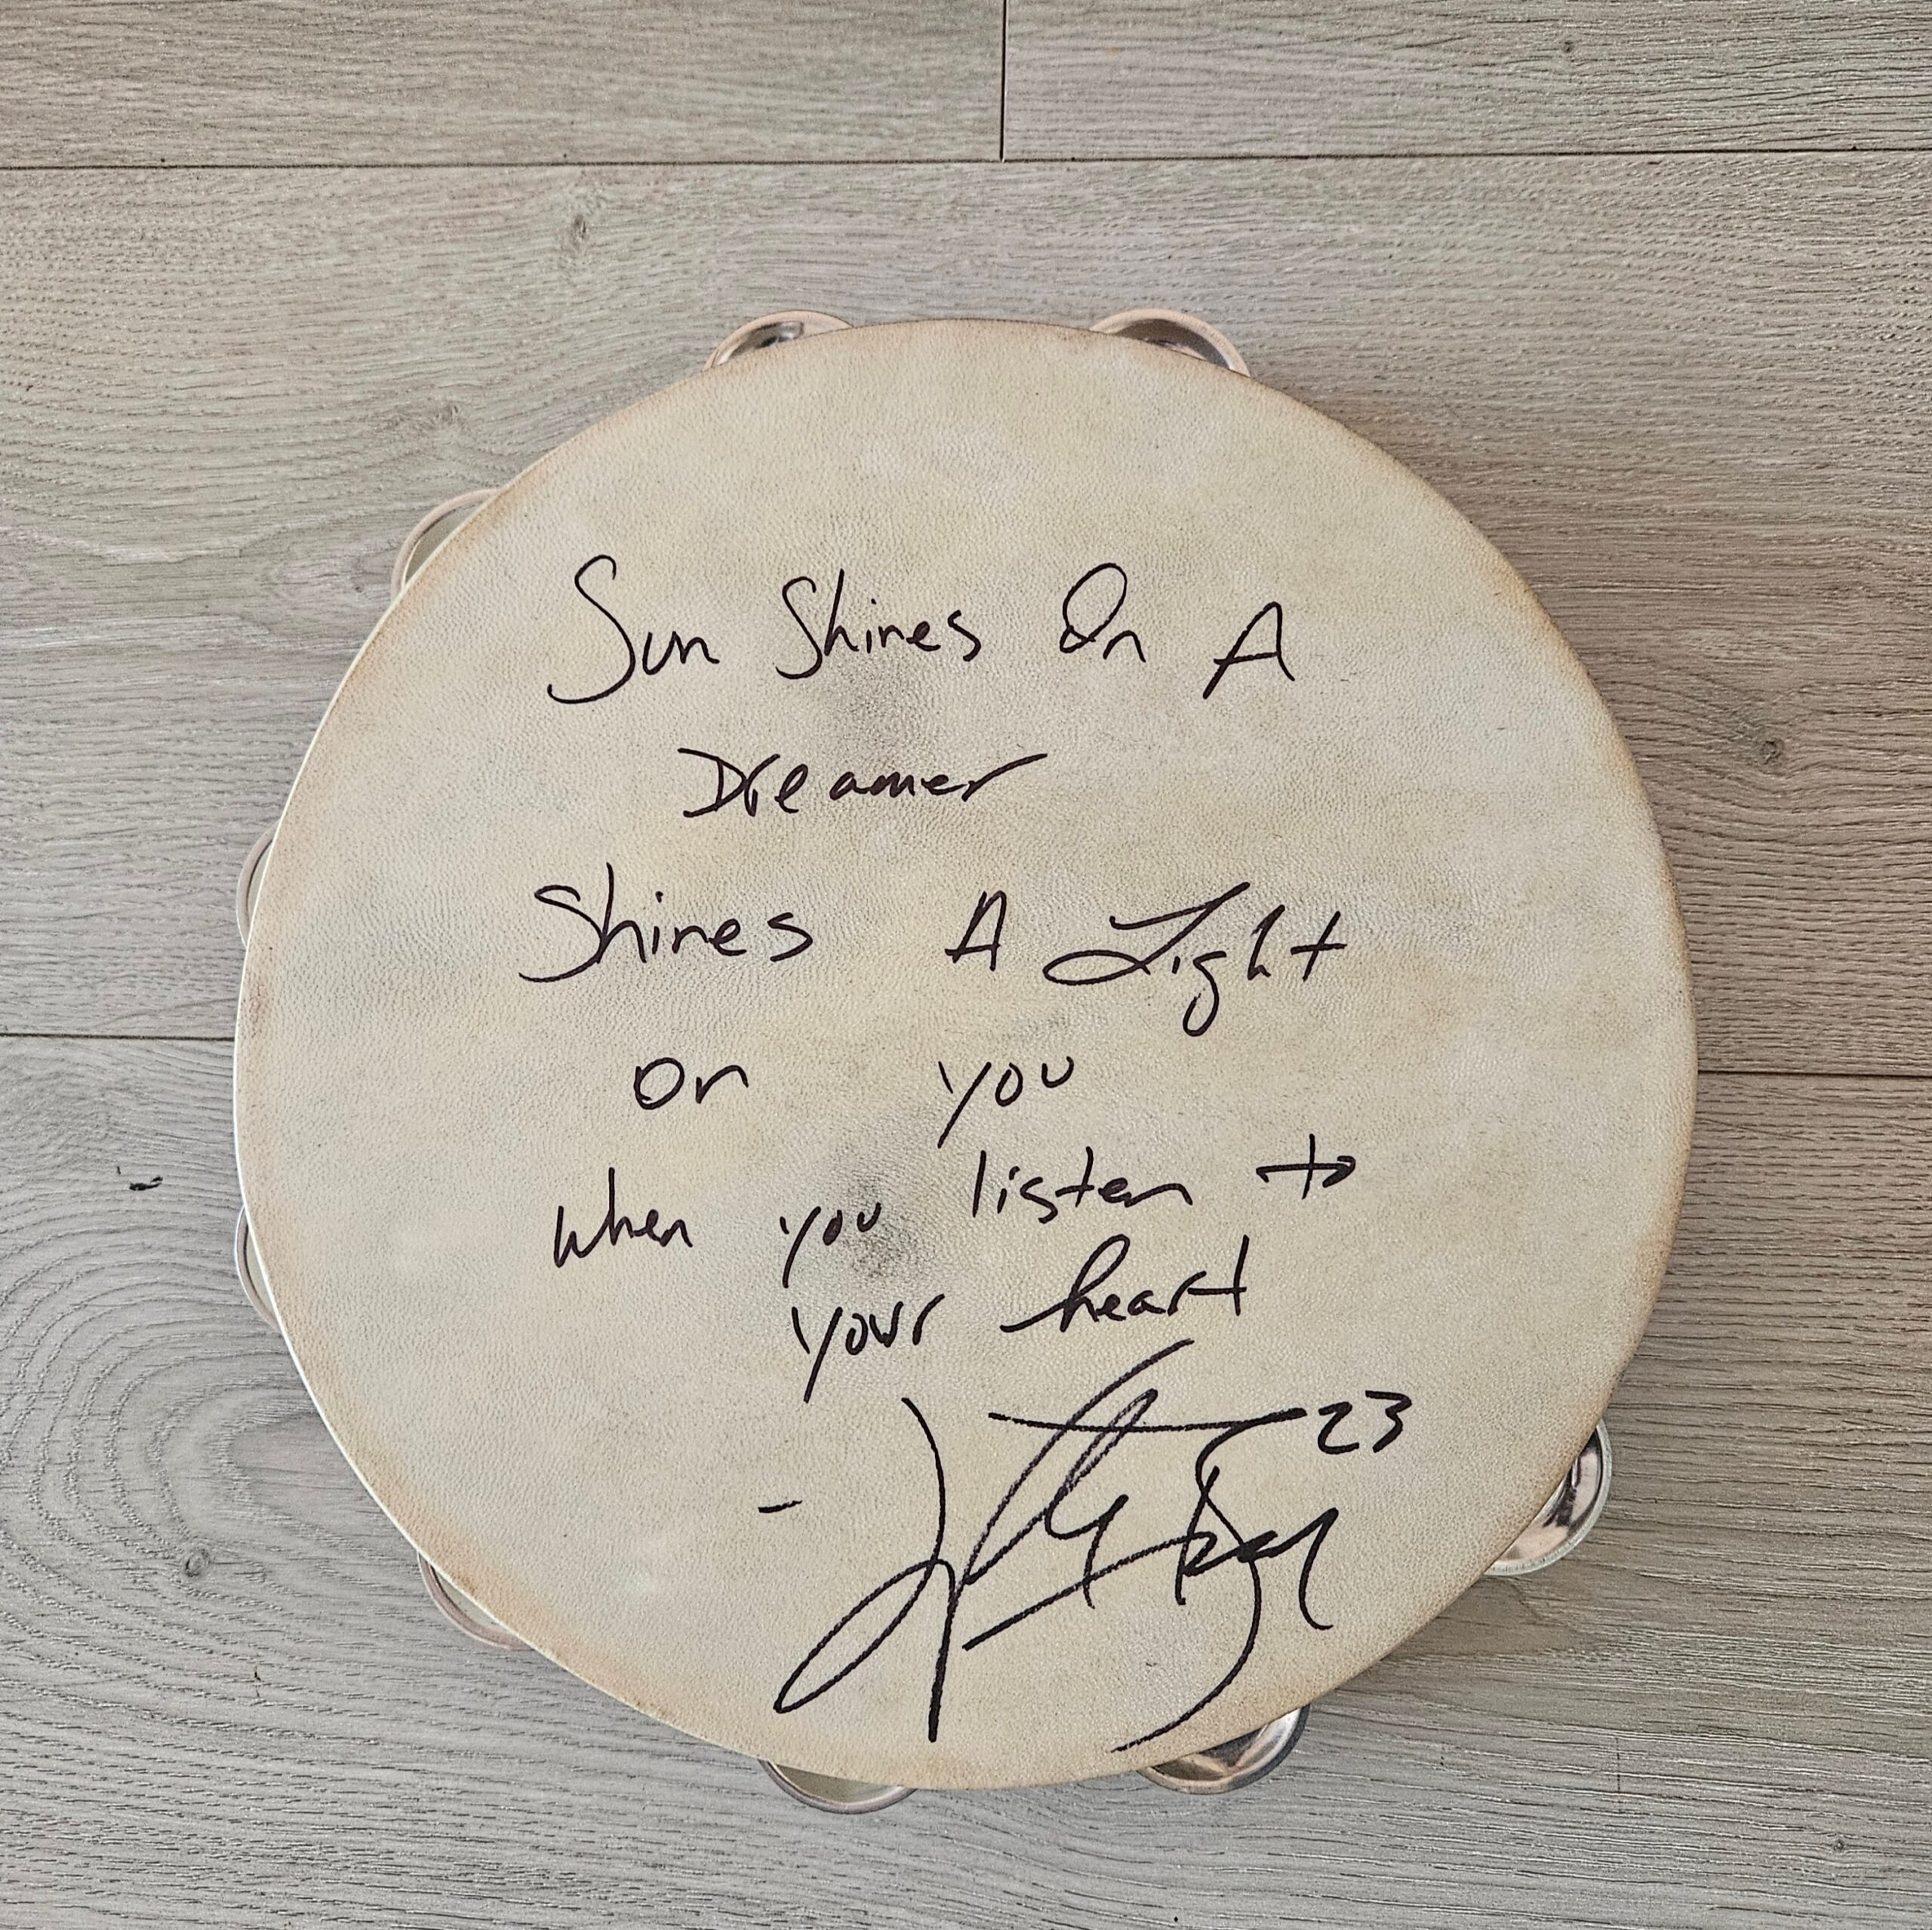 Sun Shines On A
Dreamer
Shines A Light
on you
when you listen to
your heart
23